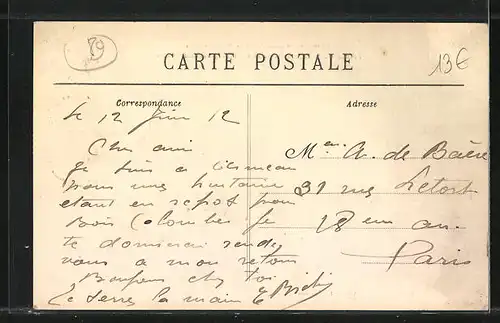 70
CARTE POSTALE
13€
Correspondance
Adresse
le 12 Juin 12
Cher ami
Je suis a
pour une huitaine
etant en repos pour
Bois Colombes Je
te donnerai rendez
vous a mon retour
Bonjour chez toi
Je serre la main
Mr A. de Baère
31 rue Letort
18 em ar.
Paris